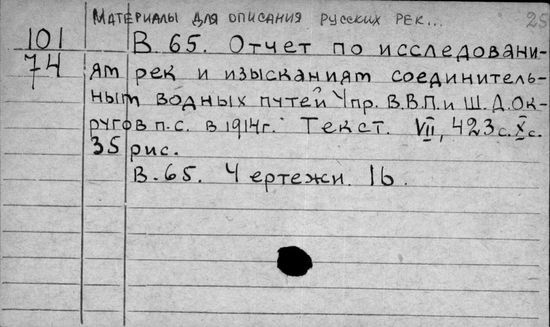 Материалы для описания русских рек... 25
101 В. 65. Отчет по исследовани-
74 ям рек и изысканиям соединитель-
ным водных путей Упр. В.В.П. и Ш. Д. Ок-
ругов п.с. в 1914г. Текст. VII, 423 с. X с.
35 рис.
В. 65. Чертежи. 16.